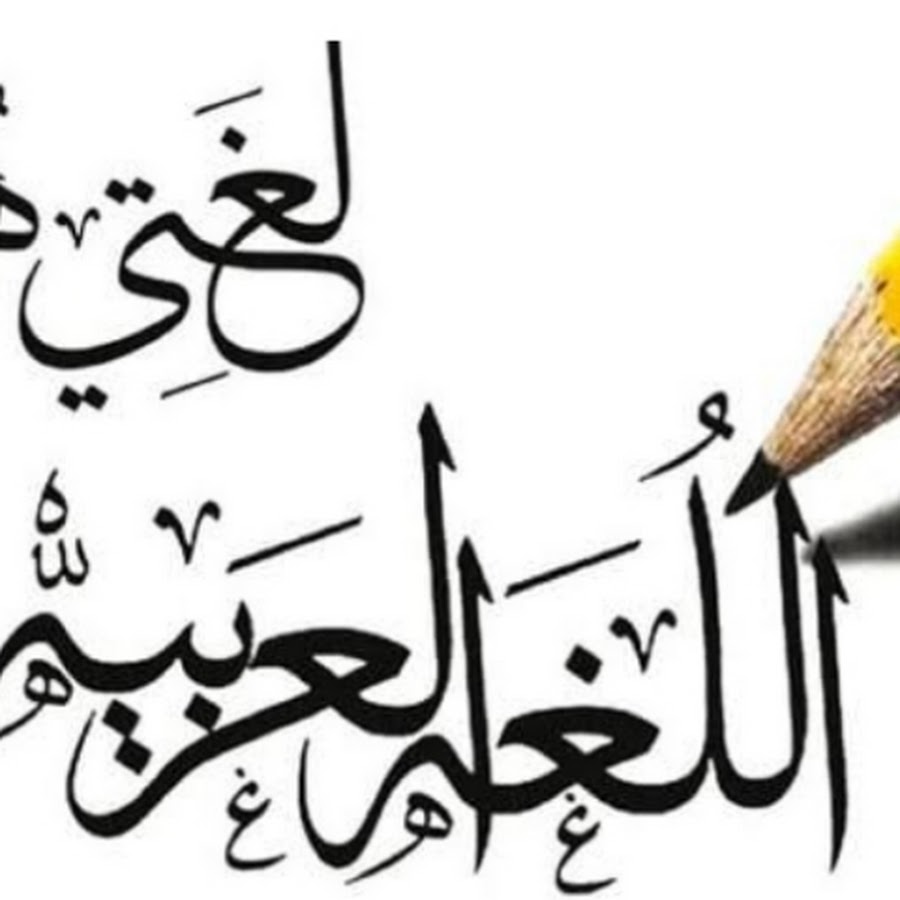 لغتي
اللغه العربيه